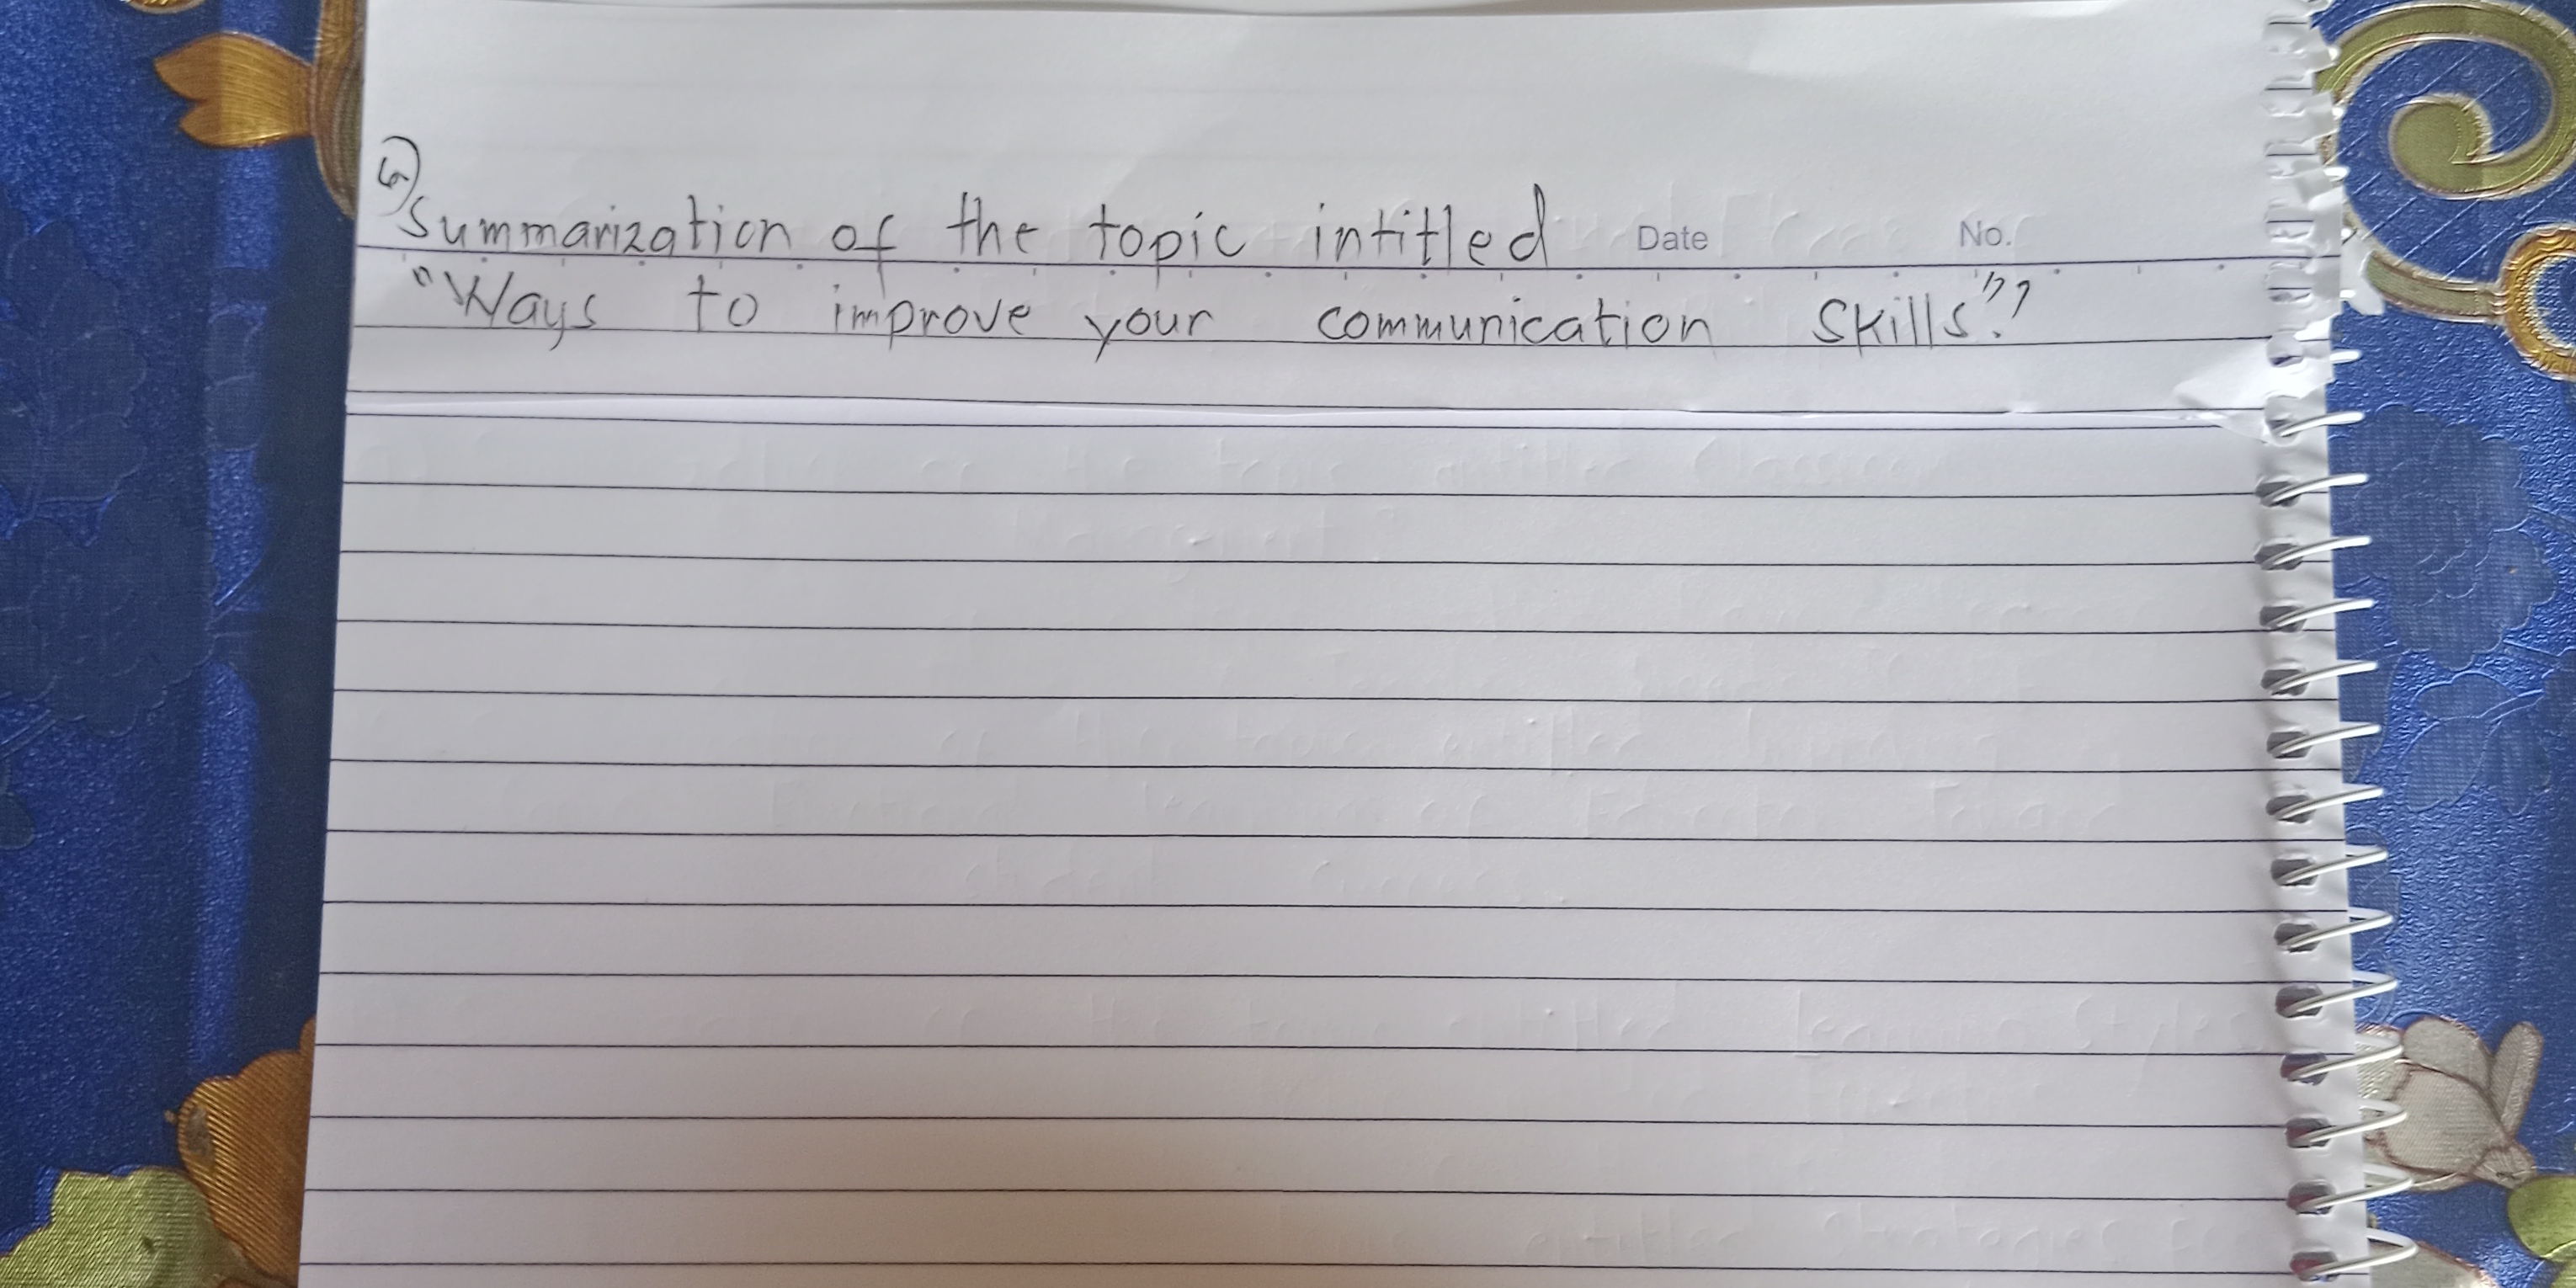 Summarization of the topic intitled Date No.
"Ways to improve your communication skills"?